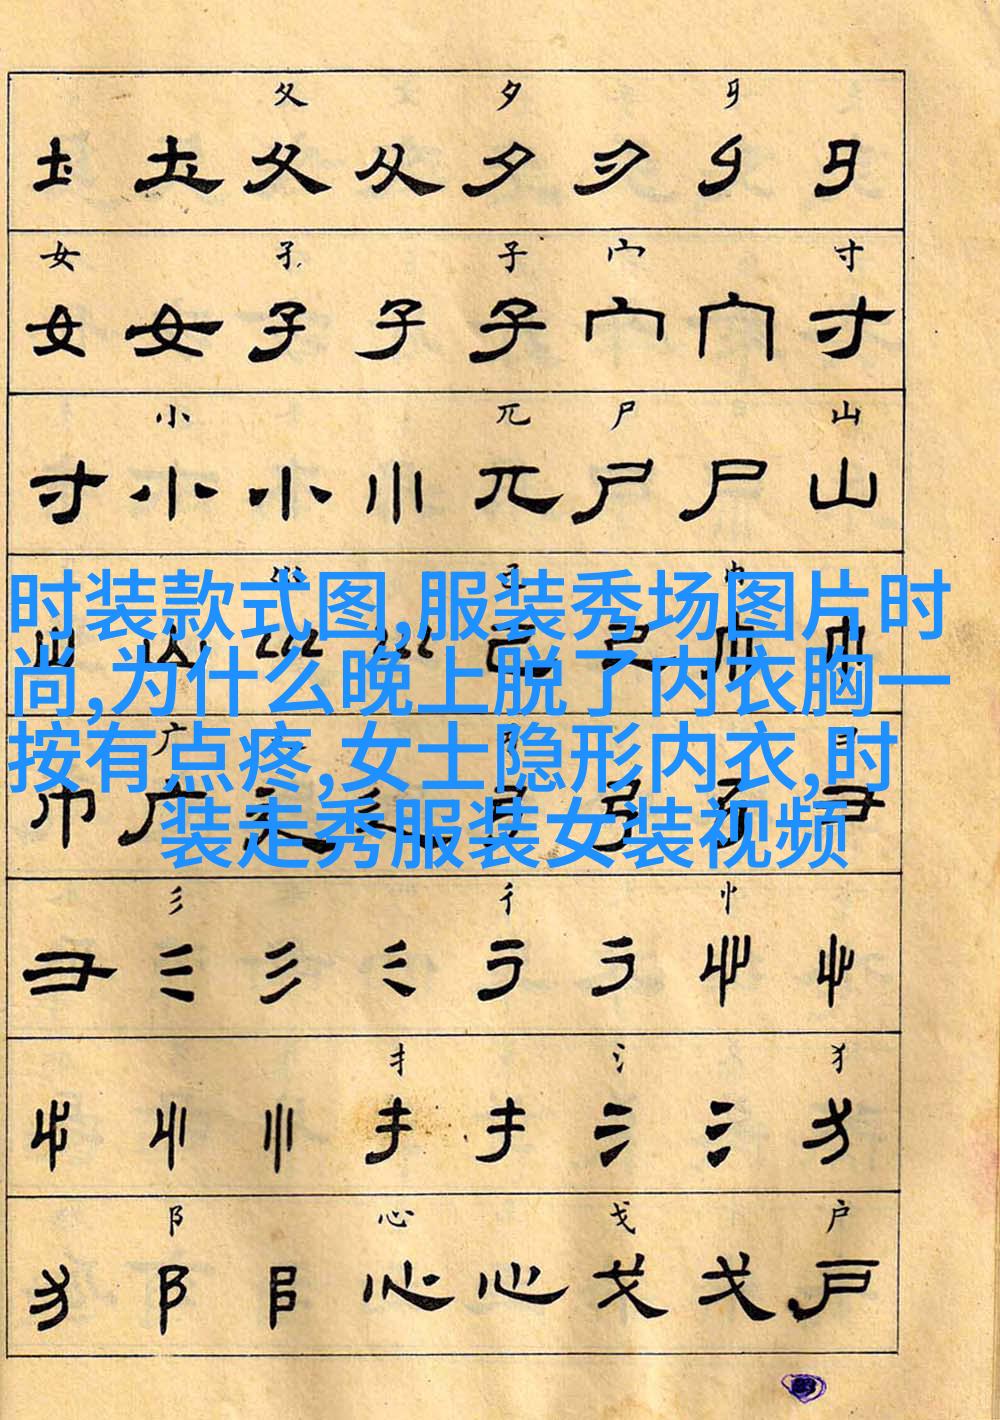 夂 夕 㐄
土 土 夂 夂 夕 夕 㐄 㐄
女 孑 子 宀 寸
女 女 子 子 子 宀 宀 寸
小 兀 尸 山
寸 小 小 小 兀 尸 尸 山
时装款式图,服装秀场图片时
尚,为什么晚上脱了内衣胸一
按有点疼,女士隐形内衣,时
装走秀服装女装视频
广 彐
巾 广
彡 彳 忄
彐 彡 彡 彡 彳 彳 忄 忄
扌 氵 犭
忄 忄 忄 扌 扌 氵 氵 犭
阝 心 戈 户
犭 阝 阝 心 心 戈 戈 户